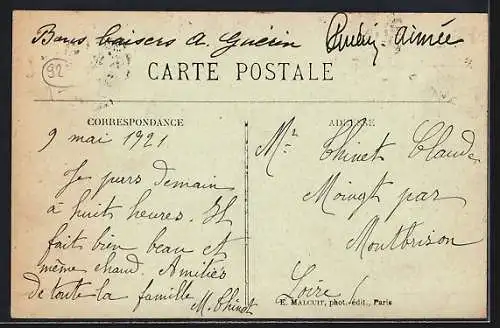 Bons baisers A. Guérin Guérin Aimée
92
CARTE POSTALE
CORRESPONDANCE
ADRESSE
9 mai 1921
Je pars demain
à huit heures. Il
fait bien beau et
même chaud. Amitiés
de toute la famille
M. Thinet
Mr Thinet Claude
Moingt par
Montbrison
Loire
E. MALCUIT, phot. édit., Paris